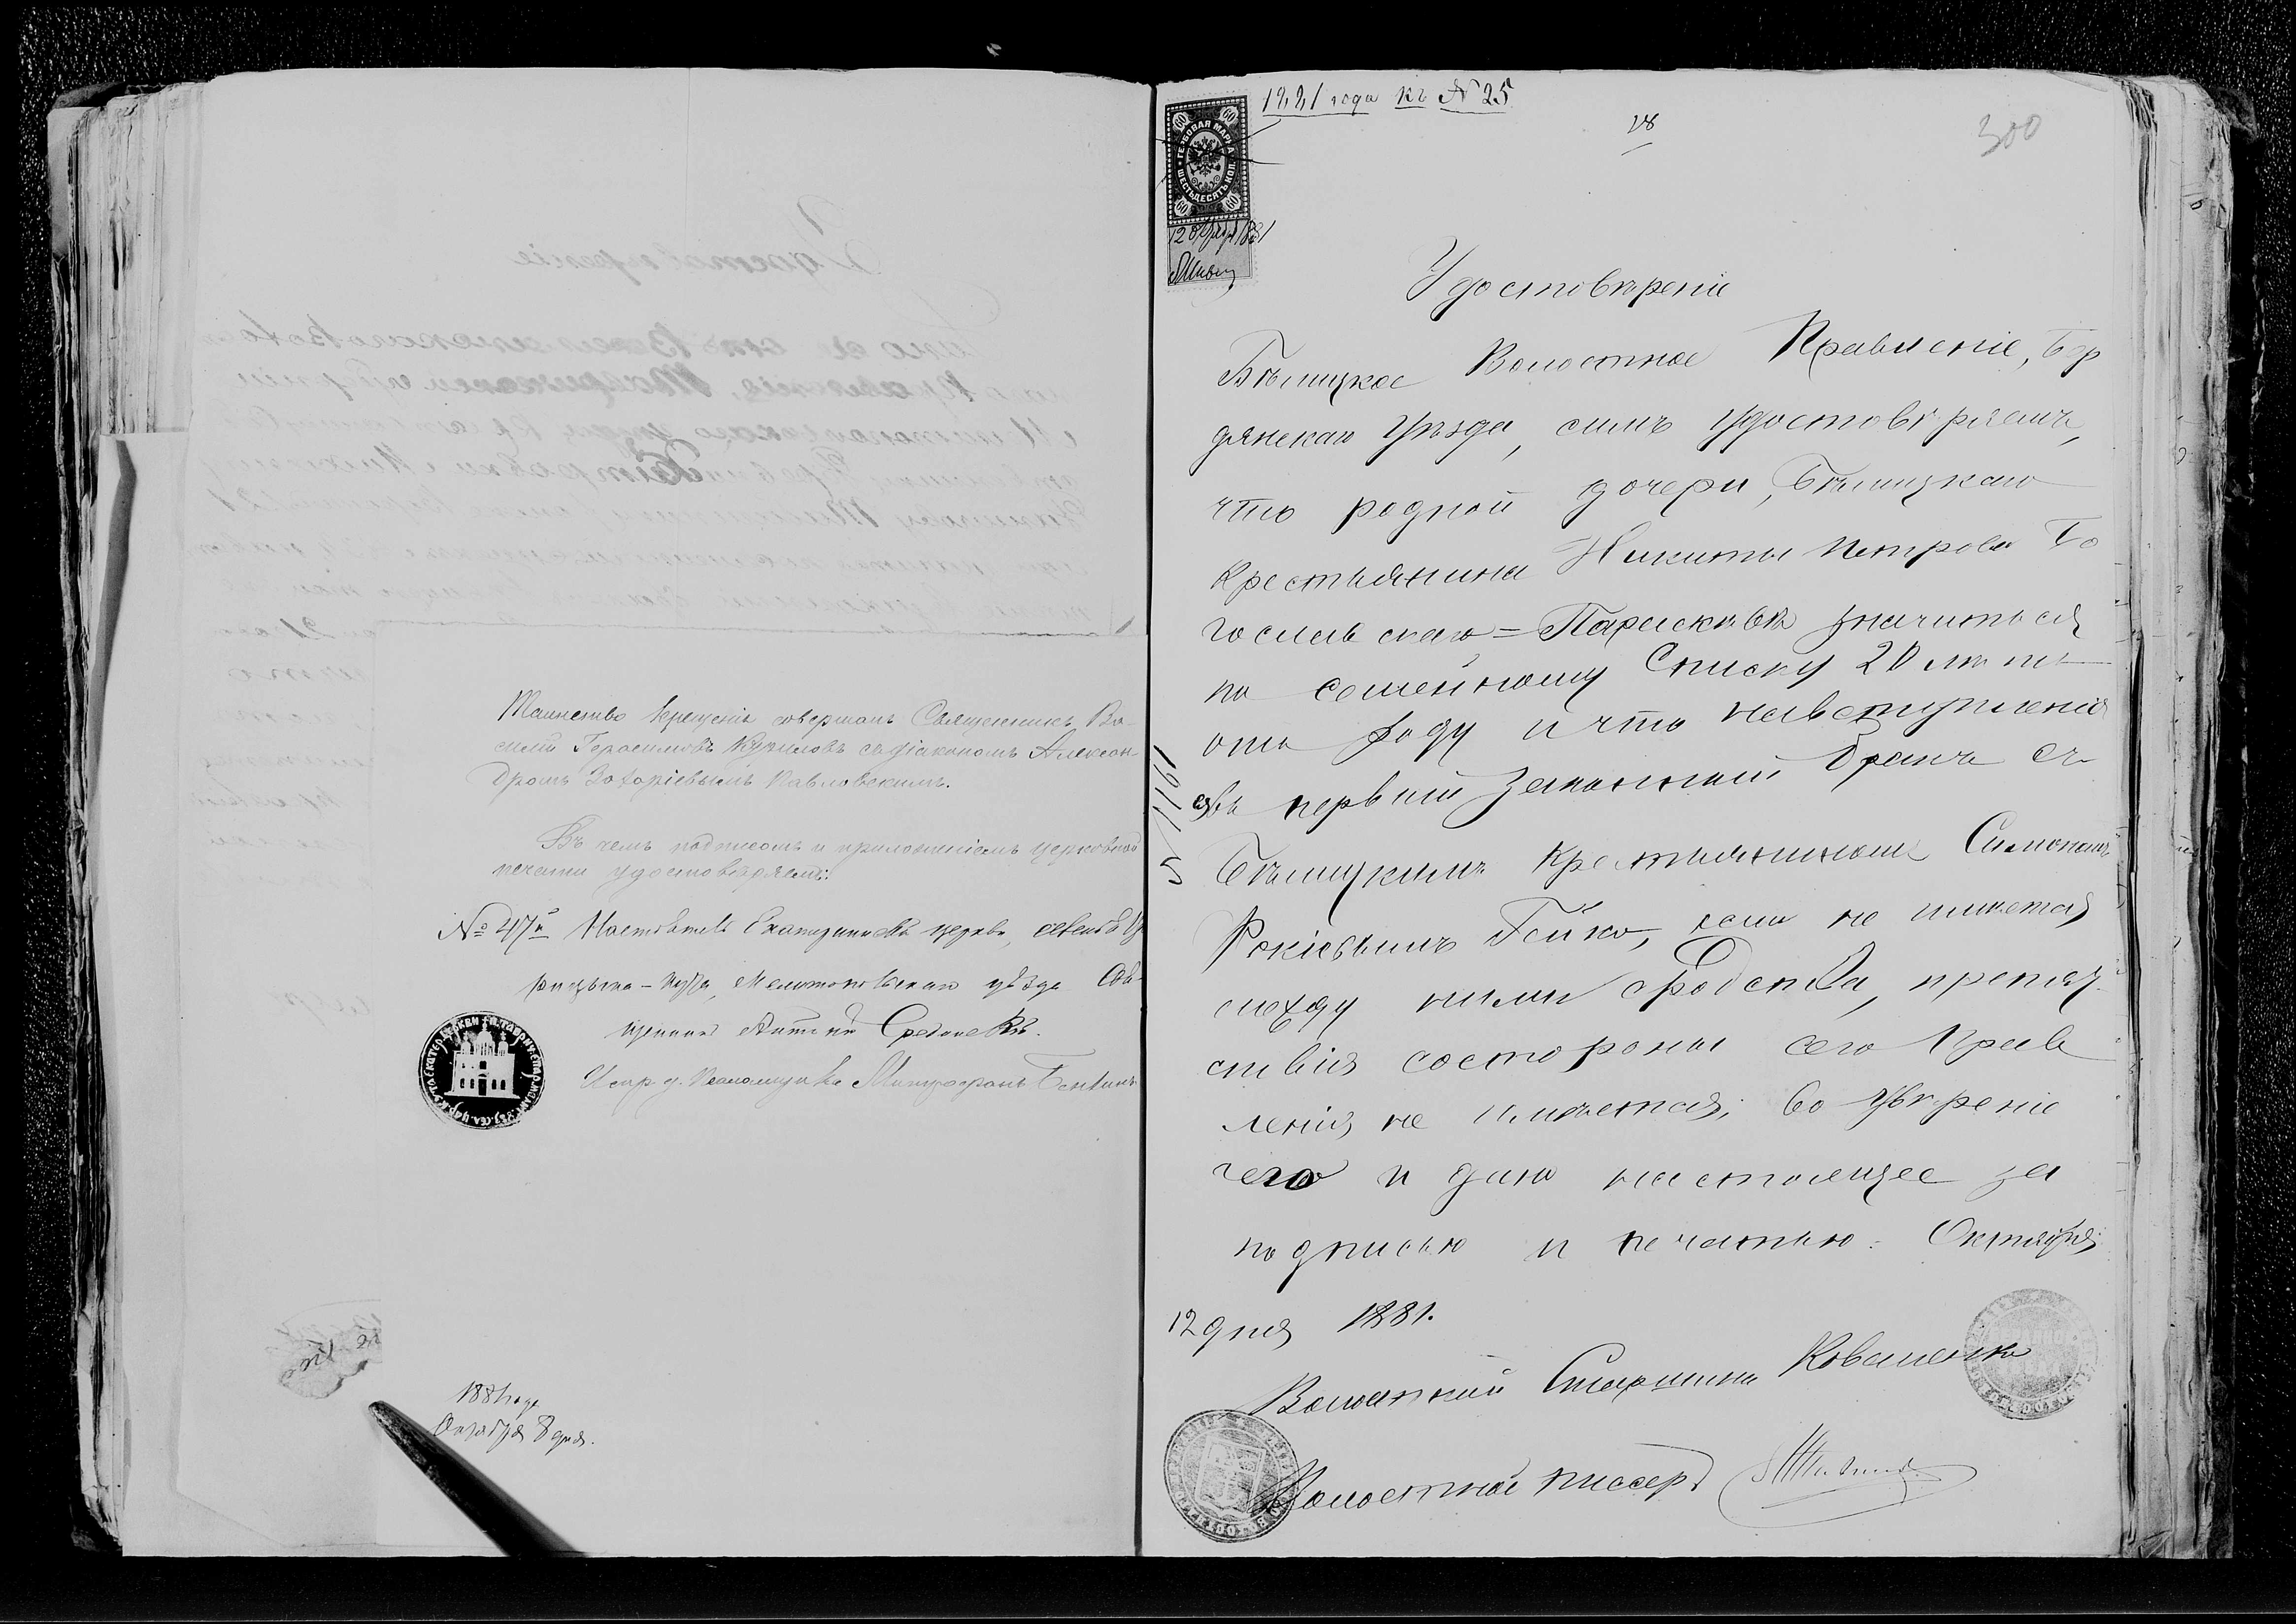 Таинство крещенія совершалъ Священникъ Ва-
силій Герасимовъ Куриловъ съ діакономъ Алексан-
дромъ Захаріевымъ Павловскимъ.
Въ чемъ подписомъ и приложеніемъ церковной
печати удостовѣряемъ:
№ 47й Настоятель церкви,
Мелитопольскаго уѣзда Свя-
щенникъ
Митрофанъ
1881 года
Октября 8 дня.
1881 года къ № 25
28
300
ГЕРБОВАЯ МАРКА
ШЕСТЬДЕСЯТЪ КОП.
60 60 60 60
12 Октября 1881
Удостовѣреніе
Бѣлицкое Волостное Правленіе, Бер
дянскаго Уѣзда, симъ удостовѣряетъ,
что родной дочери, Бѣлицкаго
крестьянина Никиты Петрова Бо
гославскаго = Парасковѣ значится
по семейному Списку 20 лѣтъ
отъ роду и что на вступленіе
ея въ первый законный бракъ съ
Бѣлицкимъ крестьяниномъ Симономъ
Фокіевымъ Гейко, если не имѣется
между ними сродства, препят-
ствія состороны сего Прав
ленія не имѣется; во увѣреніе
чего и дано настоящее за
подписью и печатью. Октября
12 дня 1881.
Волостный Старшина Коваленко
Волостной писарь